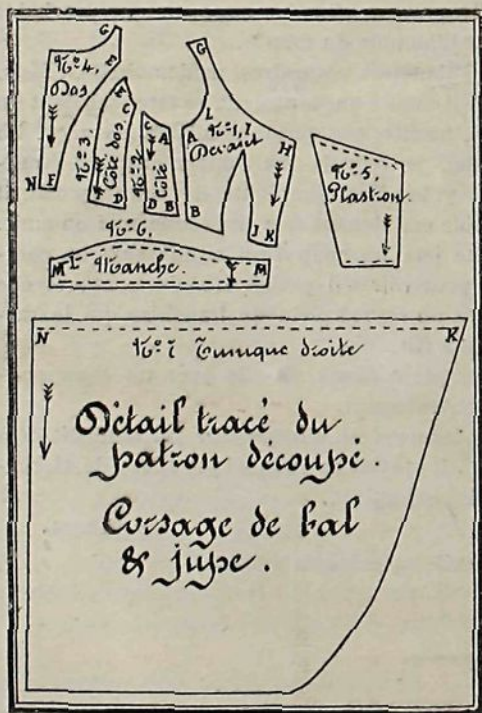 G
G
N°4,
Dos
E
N
F
N°3,
Côté dos
E
C
D
D
N°2
Côté
C
A
D B
N°1,
Devant
L
A
H
B
J K
N°5,
Plastron
N°6,
L
M
Manche.
M
N
N°7 Tunique droite
K
Détail tracé du
patron découpé.
Corsage de bal
& jupe.